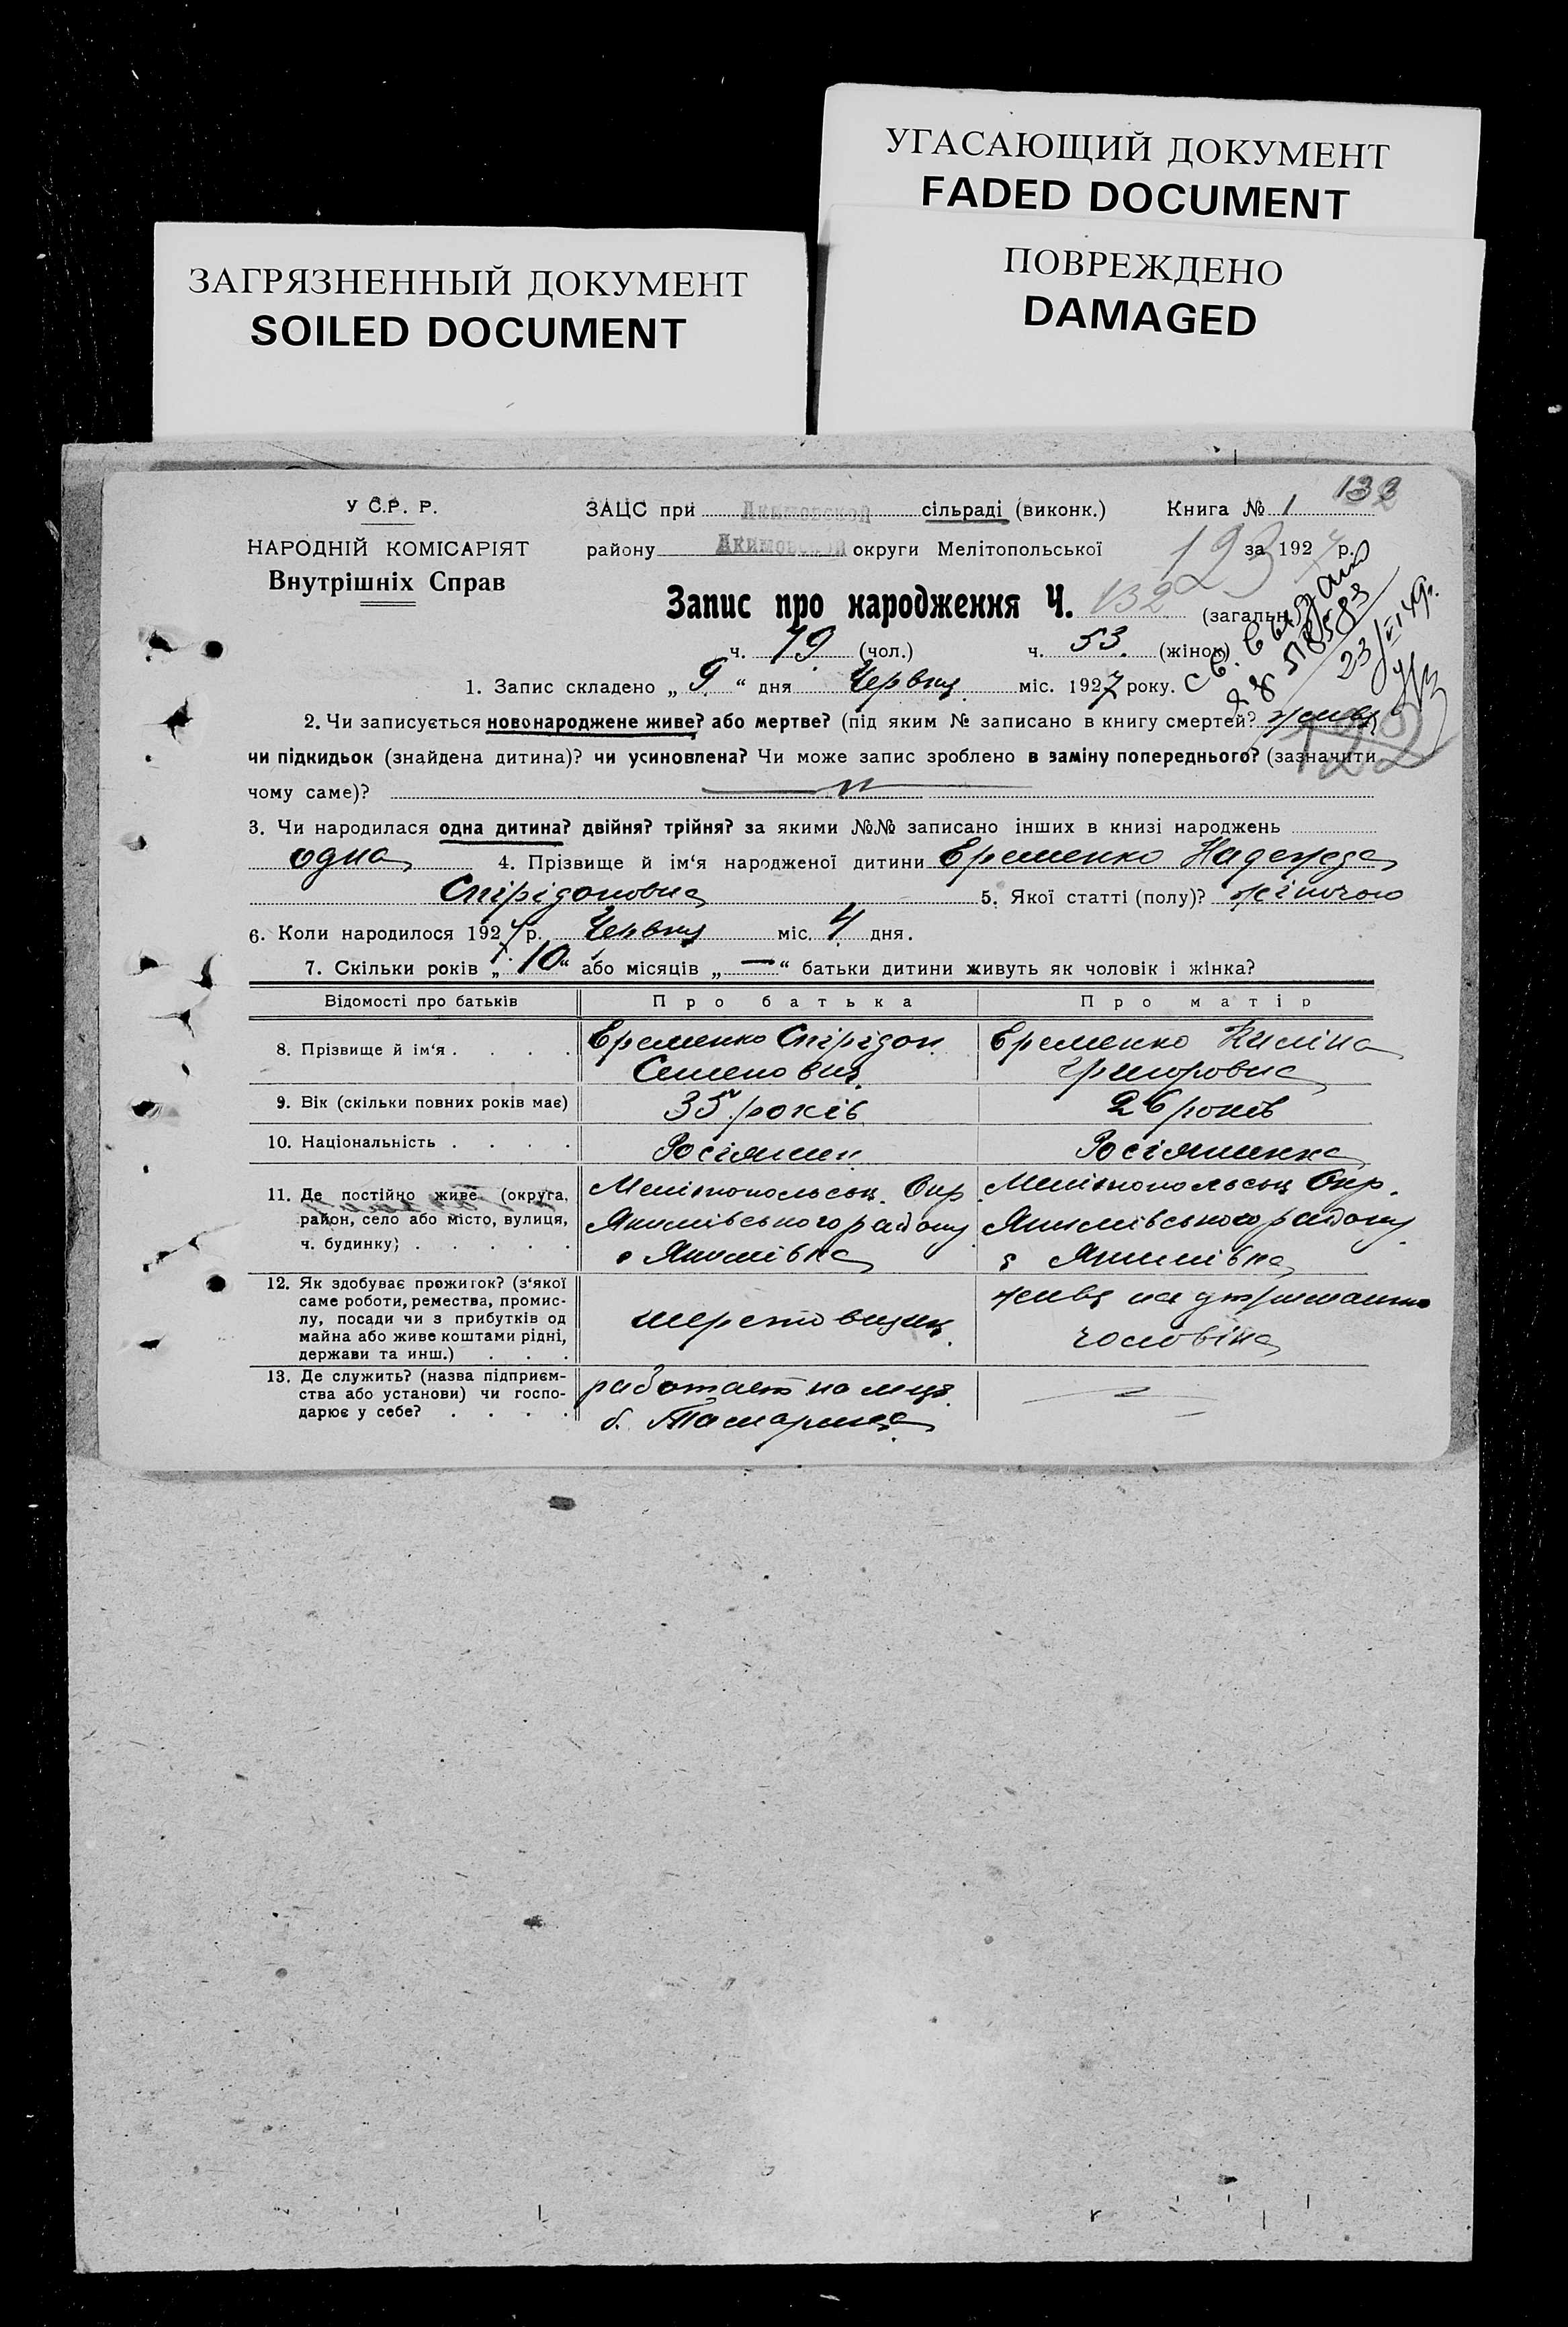 УГАСАЮЩИЙ ДОКУМЕНТ
FADED DOCUMENT
ЗАГРЯЗНЕННЫЙ ДОКУМЕНТ
SOILED DOCUMENT
ПОВРЕЖДЕНО
DAMAGED
У С.Р. Р.
НАРОДНІЙ КОМІСАРІЯТ
Внутрішніх Справ
ЗАЦС при Акимовской сільраді (виконк.) Книга № 1
району Акимовской округи Мелітопольської за 1927 р.
123
Запис про народження Ч. 132 (загальн.)
ч. 79 (чол.) ч. 53. (жінок)
1. Запис складено „ 9 “ дня Червня міс. 1927 року.
2. Чи записується новонароджене живе? або мертве? (під яким № записано в книгу смертей? живе
чи підкидьок (знайдена дитина)? чи усиновлена? Чи може запис зроблено в заміну попереднього? (зазначити
чому саме)?
3. Чи народилася одна дитина? двійня? трійня? за якими №№ записано інших в книзі народжень
одна 4. Прізвище й ім‘я народженої дитини Еременко Надежда
Спірідоновна 5. Якої статті (полу)? жіночою
6. Коли народилося 1927 р. Червня міс. 4 дня.
7. Скільки років „ 10 “ або місяців „ — “ батьки дитини живуть як чоловік і жінка?
Відомості про батьків Про батька Про матір
8. Прізвище й ім‘я . . . . Еременко Спірідон Семенович Еременко Килина Григоровна
9. Вік (скільки повних років має) 35 років 26 років
10. Національність . . . . Росіянин Росіяненка
11. Де постійно живе (округа, район, село або місто, вулиця, ч. будинку) . . . . . Мелітопольськ. Окр. Якимівського району с Якимівка Мелітопольськ Окр. Якимівського району с Якимівка
12. Як здобуває прожиток? (з‘якої саме роботи, ремества, промислу, посади чи з прибутків од майна або живе коштами рідні, держави та инш.) . . . живе на утриманню чоловіка
13. Де служить? (назва підприємства або установи) чи господарює у себе? . . . . работает на б.